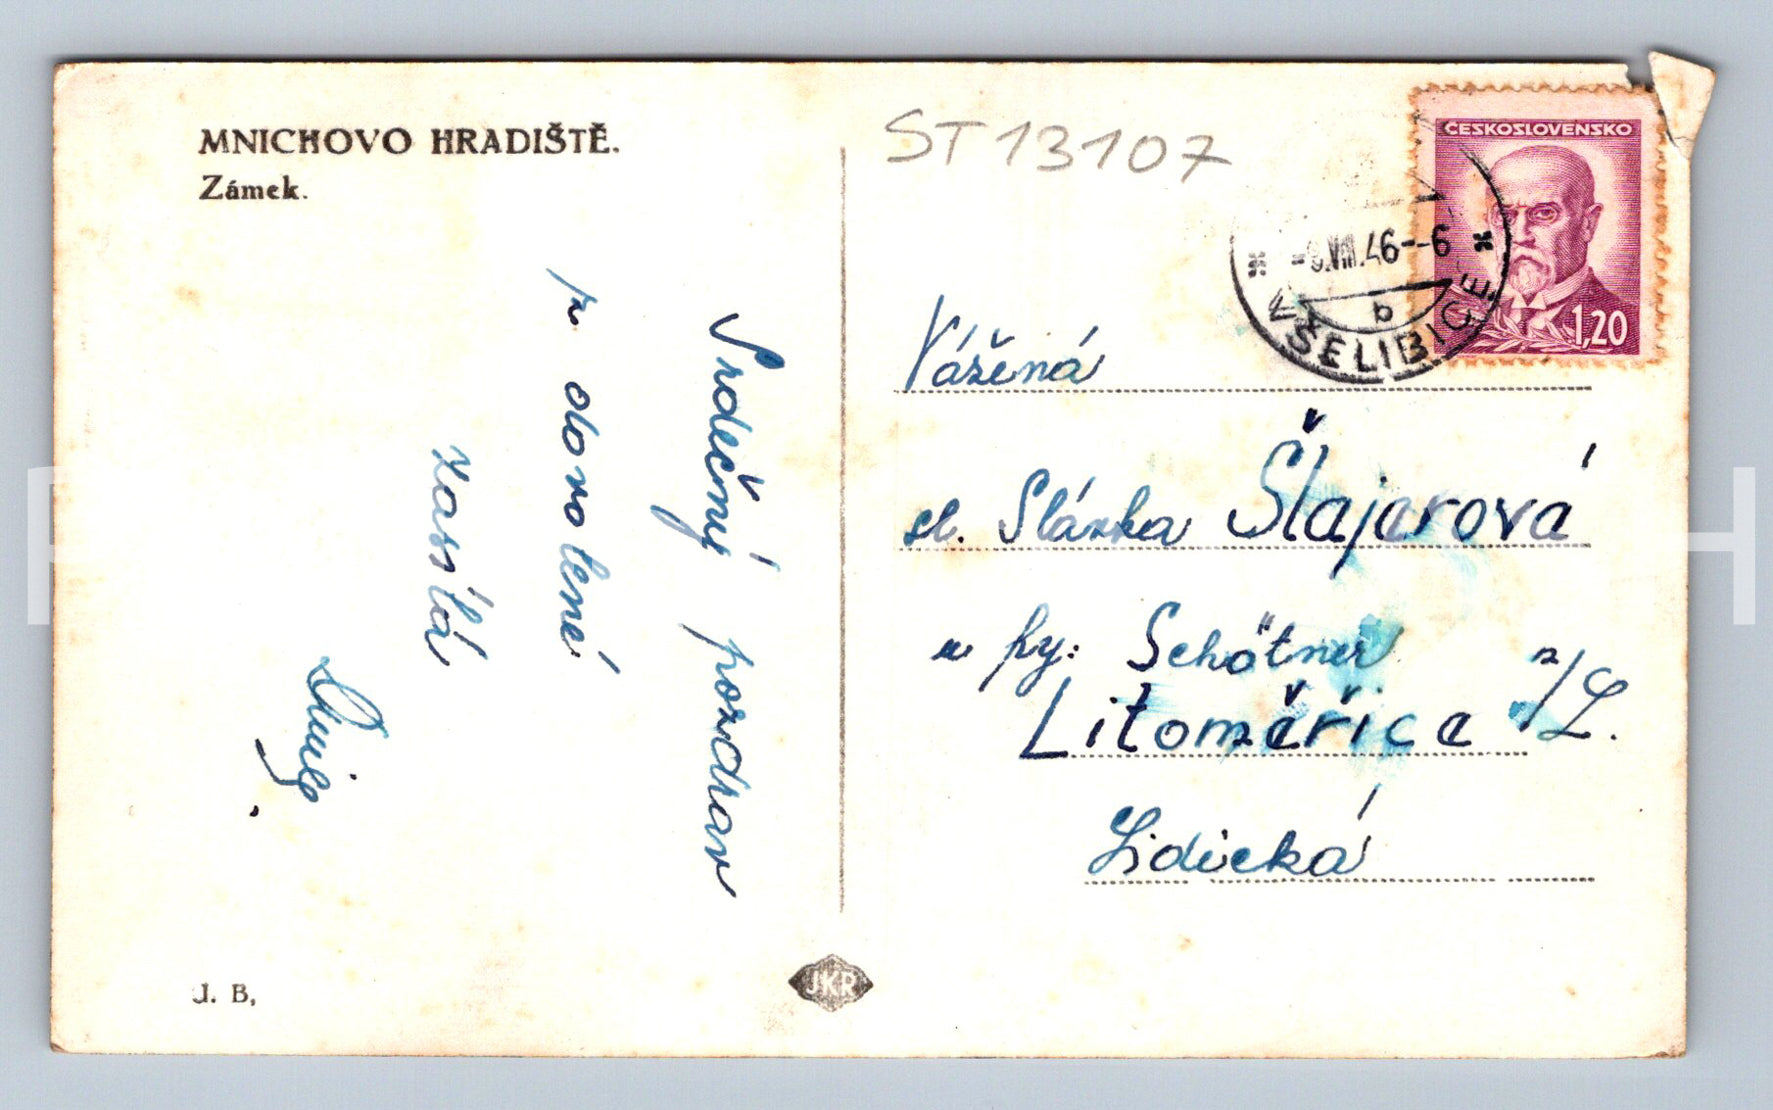 MNICHOVO HRADIŠTĚ.
Zámek.
Srdečný pozdrav
z dovolené
zasílá
J. B,
JKR
ST 13107
ČESKOSLOVENSKO
1,20
-9.VIII.46--6
b
VŠELIBICE
Vážená
sl. Slávka Šlajerová
u fy: Schötner
Litoměřice n/L.
Lidická